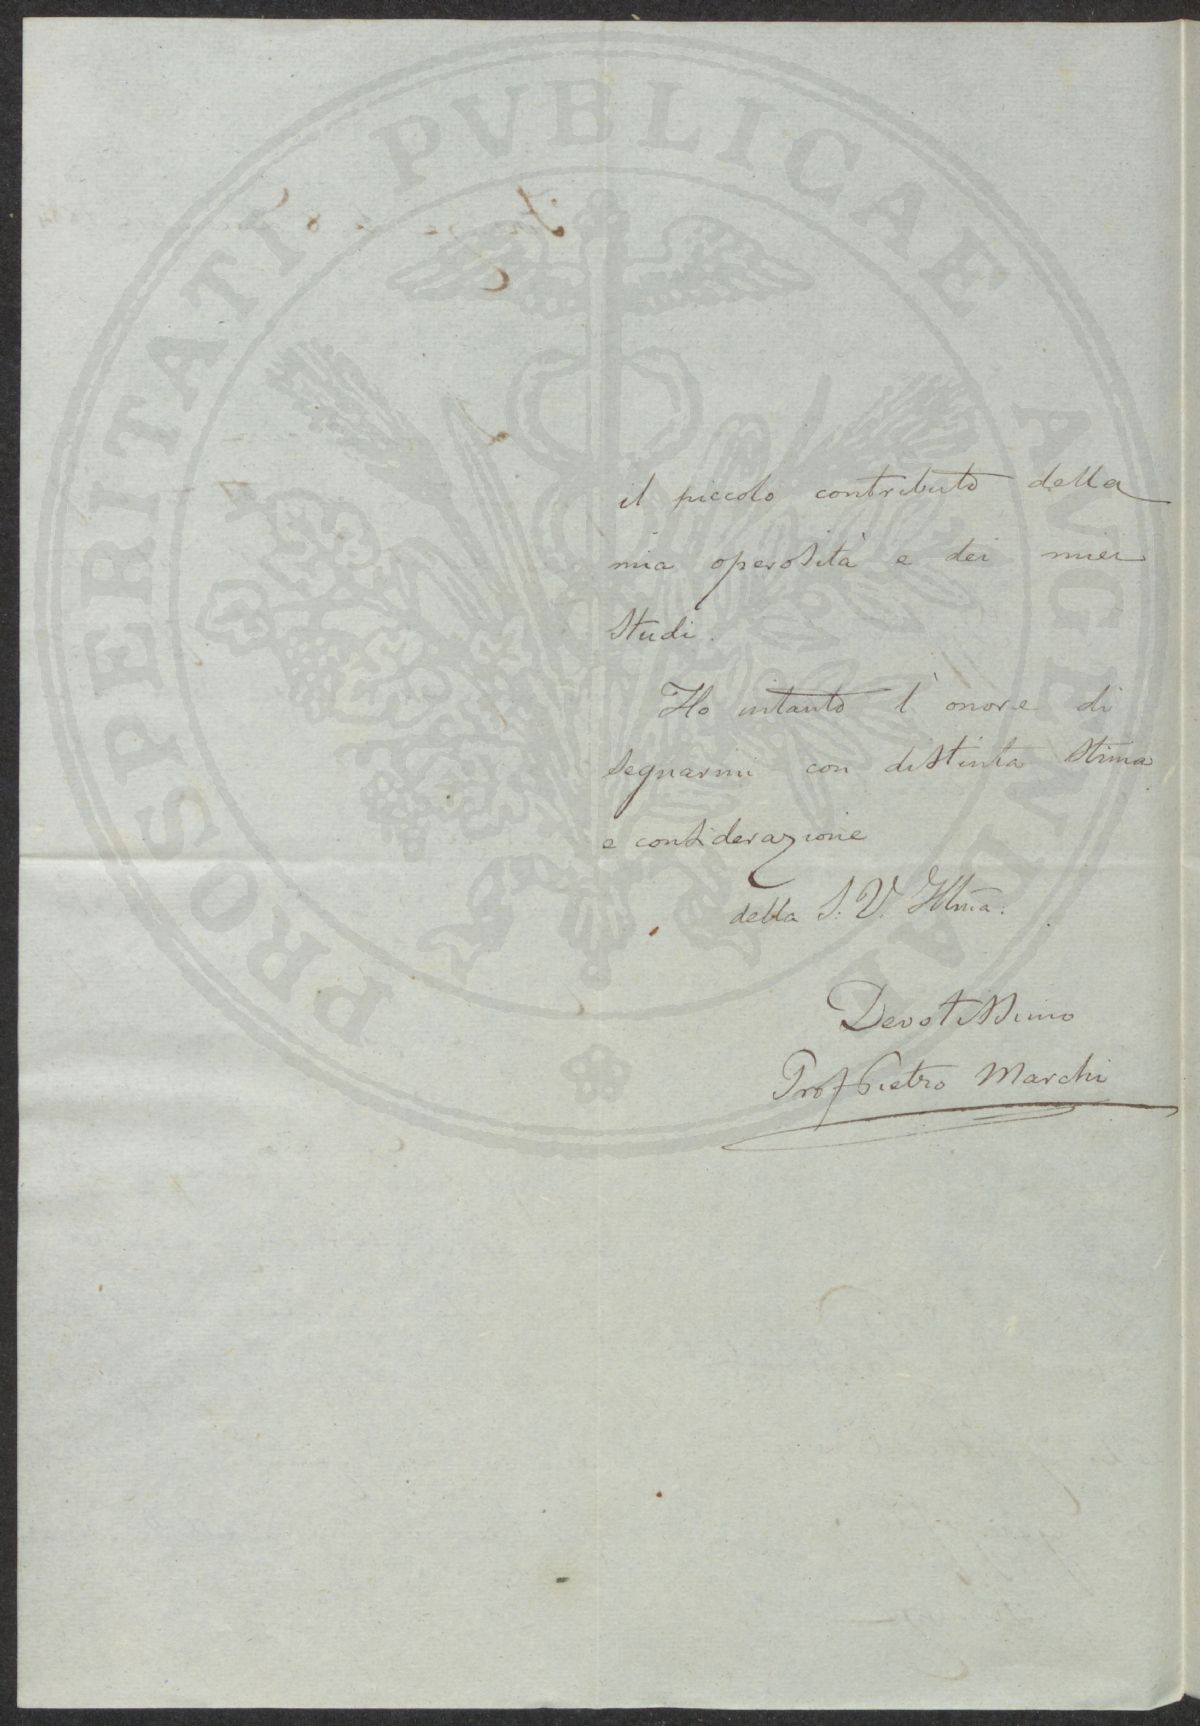 PROSPERITATI PVBLICAE AVGENDAE
il piccolo contributo della
mia operosità e dei miei
studi.
Ho intanto l'onore di
segnarmi con distinta stima
e considerazione
della S: V. Illma:
Devotissimo
Prof Pietro Marchi